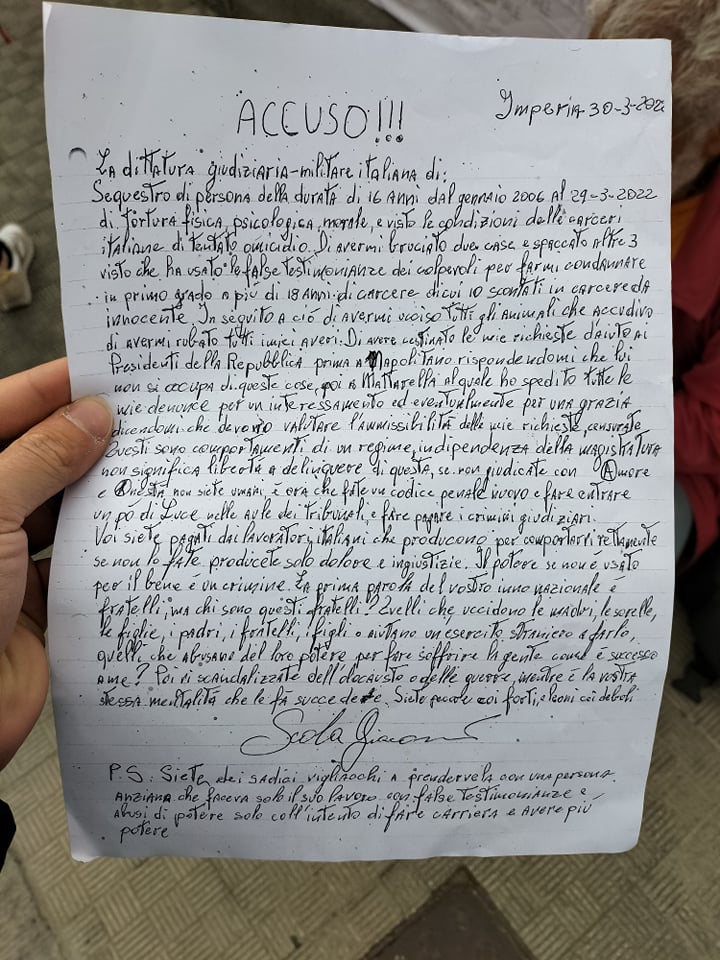 ACCUSO!!!
Imperia 30-3-202
La dittatura giudiziaria-militare italiana di:
Sequestro di persona della durata di 16 anni dal gennaio 2006 al 29-3-2022
di tortura fisica, psicologica, morale, e visto le condizioni delle carceri
italiane di tentato omicidio. Di avermi bruciato due case e spaccato altre 3
visto che ha usato le false testimonianze dei colpevoli per farmi condannare
in primo grado a più di 18 anni di carcere di cui 10 scontati in carcere da
innocente. In seguito a ciò di avermi ucciso tutti gli animali che accudivo
di avermi rubato tutti i miei averi. Di avere cestinato le mie richieste d'aiuto ai
Presidenti della Repubblica prima a Napolitano rispondendomi che lui
non si occupa di queste cose, poi a Mattarella al quale ho spedito tutte le
mie denunce per un interessamento ed eventualmente per una grazia
dicendomi che devono valutare l'ammissibilità delle mie richieste, censurate
Questi sono comportamenti di un regime, indipendenza della magistratura
non significa libertà a delinquere di questa, se non giudicate con Amore
e Onestà non siete umani, è ora che fate un codice penale nuovo e fare entrare
un pò di Luce nelle aule dei tribunali, e fare pagare i crimini giudiziari.
Voi siete pagati dai lavoratori italiani che producono per comportarvi rettamente
se non lo fate producete solo dolore e ingiustizie. Il potere se non è usato
per il bene è un crimine. La prima parola del vostro inno nazionale è
fratelli, ma chi sono questi fratelli? Quelli che uccidono le madri, le sorelle,
le figlie, i padri, i fratelli, i figli o aiutano un esercito straniero a farlo,
quelli che abusano del loro potere per fare soffrire la gente come è successo
a me? Poi vi scandalizzate dell'olocausto o delle guerre, mentre è la vostra
stessa mentalità che le fà succedere. Siete pecore coi forti, e leoni coi deboli
Scola
P.S: Siete dei sadici vigliacchi a prendervela con una persona
anziana che faceva solo il suo lavoro con false testimonianze e
abusi di potere solo coll'intento di fare carriera e avere più
potere